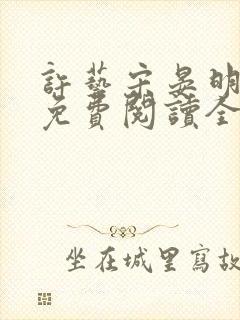 許藝宋晏明
免費閱讀全
坐在城里寫故